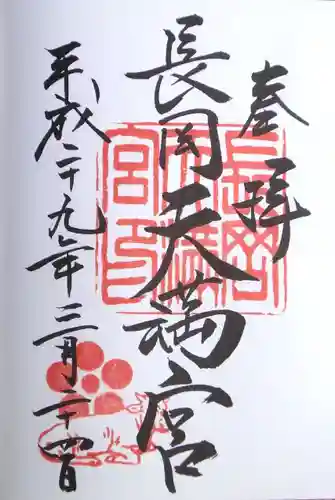 奉拝
長岡天満宮
平成二十九年三月二十四日
長岡天満宮印